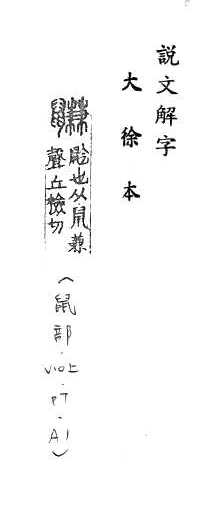 説文解字
大徐本
鼸 䶃也从鼠兼
聲丘檢切
(鼠部·V10上·P7·A1)